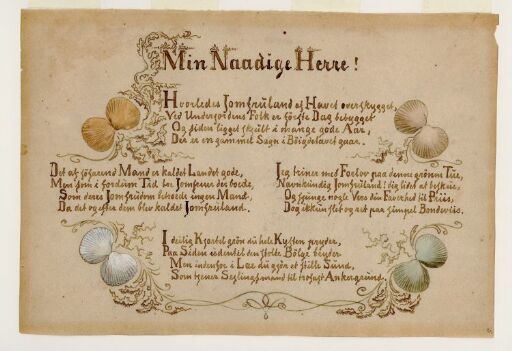 Min Naadige Herre!
Hvorledes Jomfruland af Havet overskygget,
Ved Underjordens Folk er første Dag bebygget
Og siden ligget skiult i mange gode Aar,
Det er en gammel Sagn i Böigdelavet gaar.
Det af söfarend Mand er kaldet Landet gode,
Men som i fordum Tid her Jomfruer der boede,
Som deres Jomfrudom betroede ingen Mand,
Da det og efter dem blev kaldet Jomfruland.
Jeg triner med Forlov paa denne grönne Tüe,
Navnkundig Jomfruland! dig lidet at beskue,
Og siunge nogle Vers din Favrhed til Priis,
Dog ikkun slet og ret paa simpel Bondeviis.
I deilig Kiortel grön du hele Kysten pryder,
Paa Siden uden til den stolte Bölge bryder
Men indenfor i Læ du giör et stille Sund,
Som tiener Seglingsmand til trofast Ankergrund.